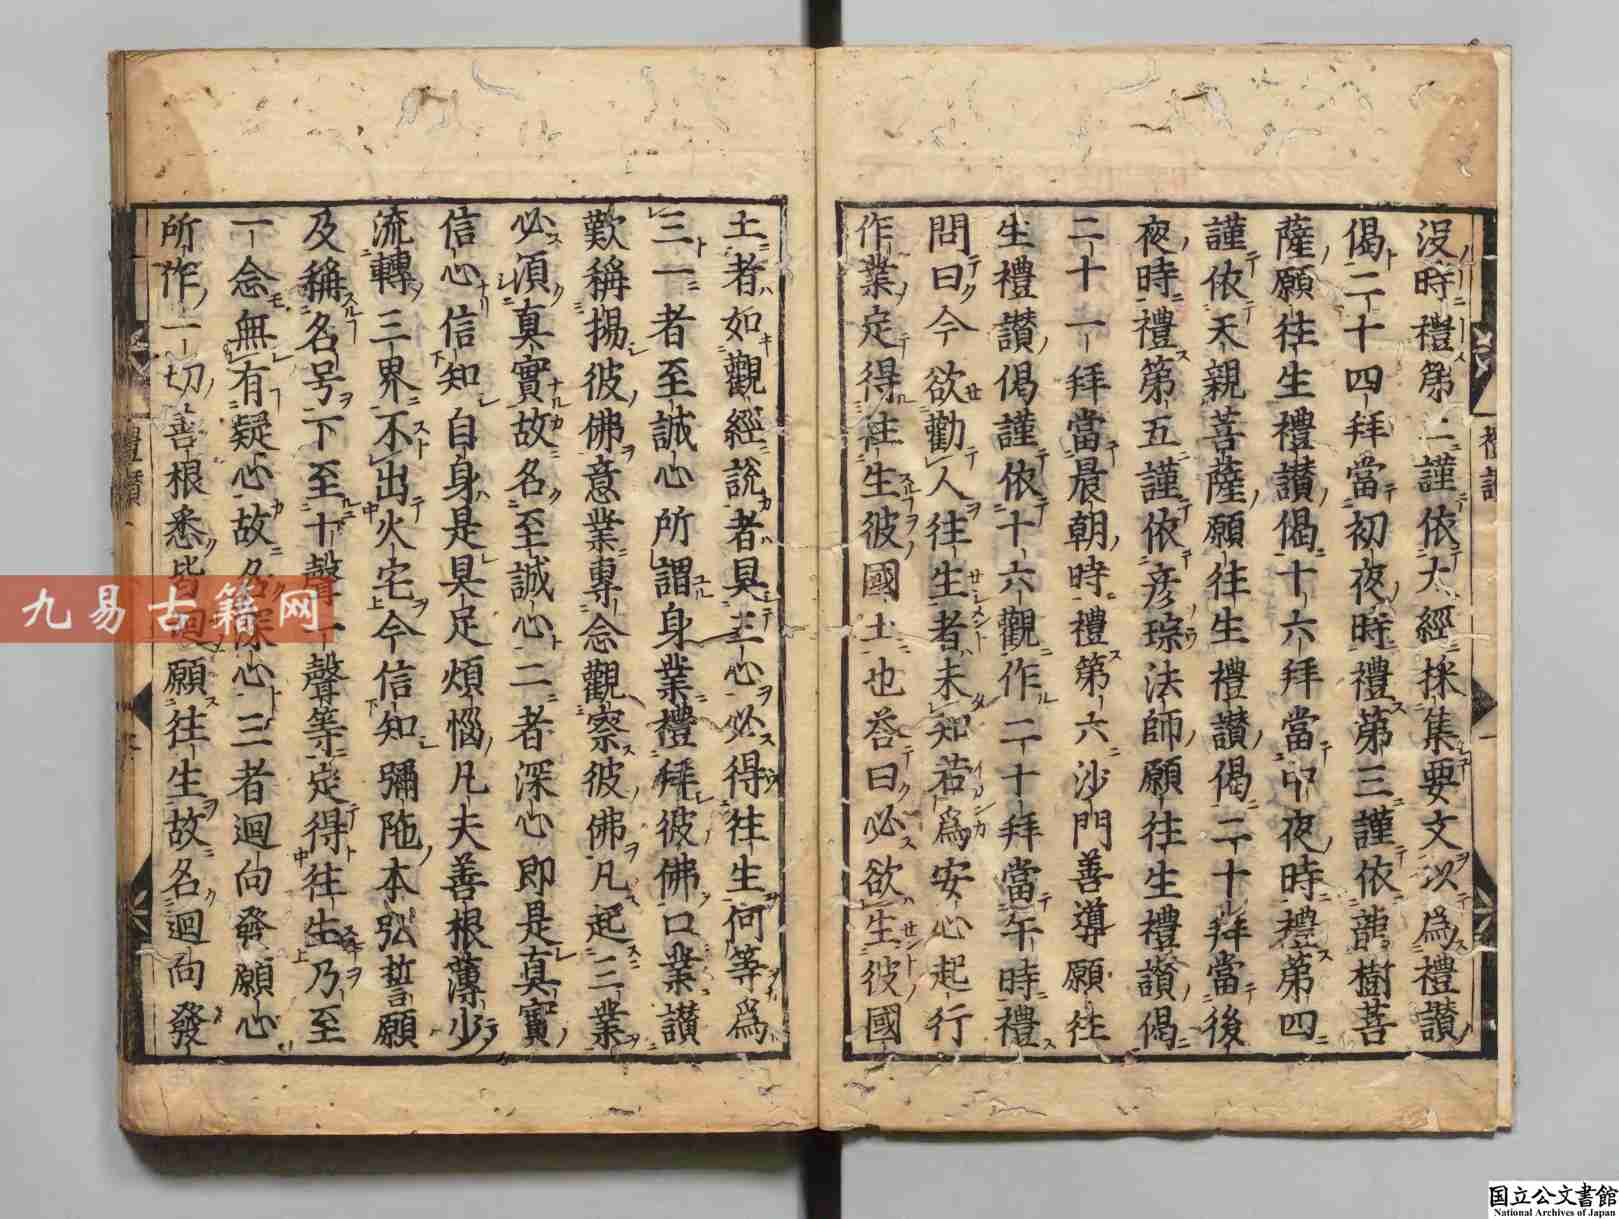 沒時禮第二謹依大經採集要文以為禮讃
偈二十四拜當初夜時禮第三謹依龍樹菩
薩願往生禮讃偈十六拜當中夜時禮第四
謹依天親菩薩願往生禮讃偈二十拜當後
夜時禮第五謹依彦琮法師願往生禮讃偈
二十一拜當晨朝時禮第六沙門善導願往
生禮讃偈謹依十六觀作二十拜當午時禮
問曰今欲勸人往生者未知若為安心起行
作業定得往生彼國土也荅曰必欲生彼國
土者如觀經說者具三心必得往生何等為
三一者至誠心所謂身業禮拜彼佛口業讃
歎稱揚彼佛意業專念觀察彼佛凡起三業
必須真實故名至誠心二者深心即是真實
信心信知自身是具足煩惱凡夫善根薄少
流轉三界不出火宅今信知彌陁本弘誓願
及稱名号下至十聲一聲等定得往生乃至
一念無有疑心故名深心三者迴向發願心
所作一切善根悉皆迴願往生故名迴向發
禮讃
九易古籍网
国立公文書館
National Archives of Japan